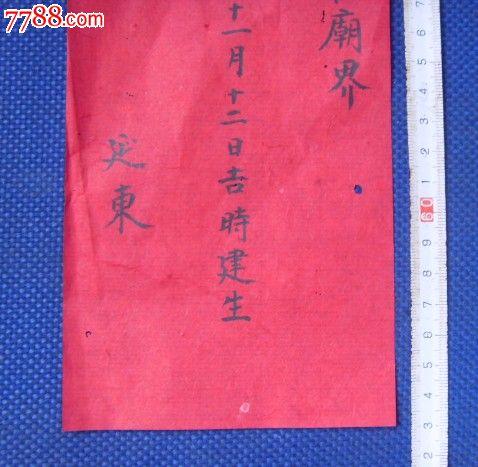 7788.com
中国收藏热线
廟界
十一月十二日吉時建生
東
7 6 5 4 3 2 1 60 9 8 7 6 5 4 3 2